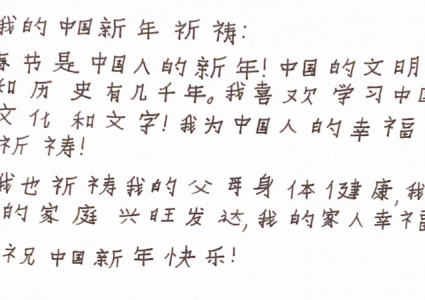 我的中国新年祈祷:
春节是中国人的新年!中国的文明
和历史有几千年。我喜欢学习中国
文化和文字!我为中国人的幸福
祈祷!
我也祈祷我的父母身体健康,我
的家庭兴旺发达,我的家人幸福
祝中国新年快乐!